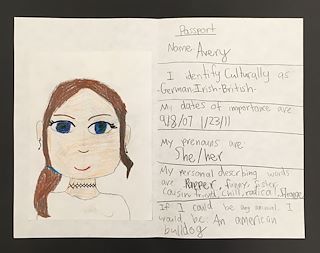 Passport
Name: Avery
I identify Culturally as
-German-Irish-British-
My dates of importance are
9/8/07 1/23/11
My pronouns are
She/her
My personal describing words
are funny, fisher
cousin, friend, chill, radical, Strange
If I could be any animal. I
would be: An american
bulldog